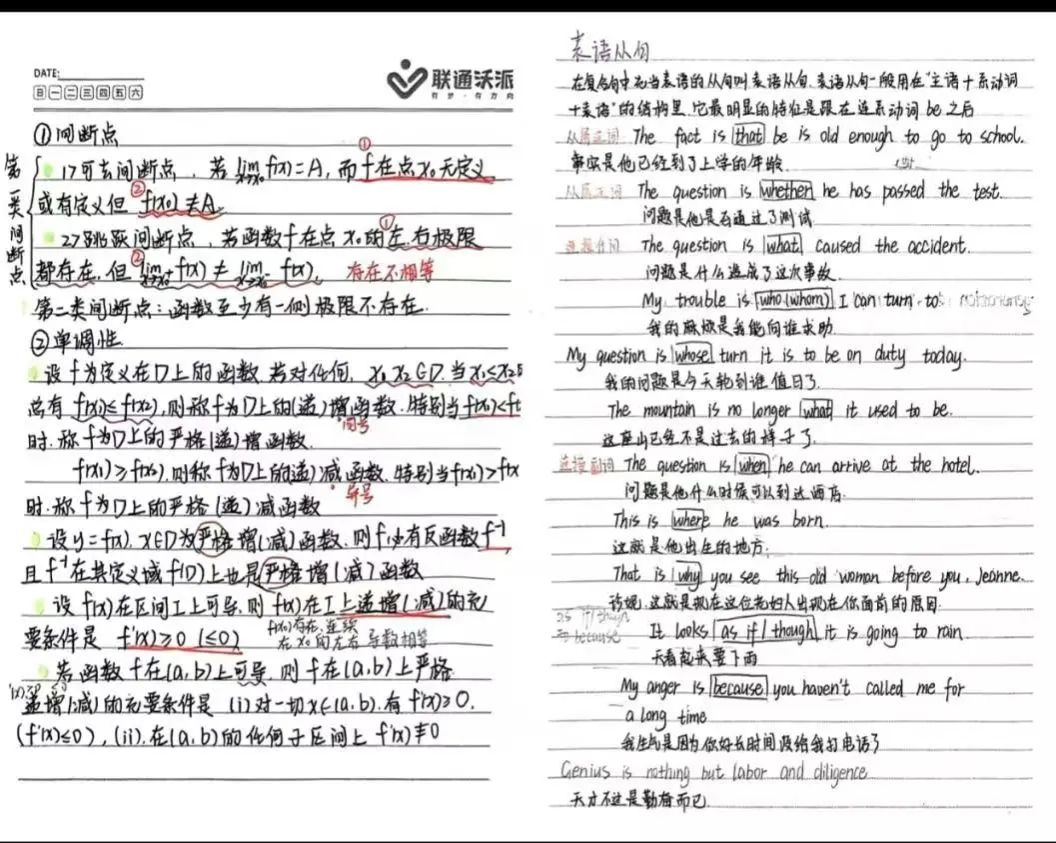 DATE:
日 一 二 三 四 五 六
联通沃派
有梦·有方向
①间断点
第一类间断点
1>可去间断点，若 lim x→x₀ f(x)=A，而f在点x₀无定义
①
或有定义但 f(x₀)≠A.
②
2>跳跃间断点，若函数f在点x₀的左右极限
①
都存在，但 lim x→x₀⁺ f(x) ≠ lim x→x₀⁻ f(x). 存在不相等
②
第二类间断点：函数至少有一侧极限不存在.
②单调性.
设f为定义在D上的函数.若对任何，x₁.x₂∈D.当x₁<x₂时
总有 f(x₁)≤f(x₂),则称f为D上的(递)增函数.特别当f(x₁)<f
同号
时.称f为D上的严格(递)增函数.
f(x₁)≥f(x₂).则称f为D上的(递)减函数.特别当f(x₁)>f(x
异号
时.称f为D上的严格(递)减函数
设y=f(x).x∈D为严格增(减)函数.则f必有反函数f⁻¹,
且f⁻¹在其定义域f(D)上也是严格增(减)函数
设f(x)在区间I上可导.则f(x)在I上递增(减)的充
要条件是 f'(x)≥0 (≤0)
f(x)存在.连续
在x₀的左右导数相等
若函数f在(a,b)上可导.则f在(a,b)上严格
递增(减)的充要条件是 (i)对一切x∈(a,b).有f'(x)≥0.
(f'(x)≤0),(ii).在(a,b)的任何子区间上f'(x)≢0
表语从句
在复合句中充当表语的从句叫表语从句.表语从句一般用在"主语+系动词
+表语"的结构里.它最明显的特征是跟在连系动词be之后
从属连词 The fact is that he is old enough to go to school.
事实是他已经到了上学的年龄.
从属连词 The question is whether he has passed the test.
问题是他是否通过了测试
连接代词 The question is what caused the accident.
问题是什么造成了这次事故.
My trouble is who(whom) I can turn to
我的麻烦是我能向谁求助.
My question is whose turn it is to be on duty today.
我的问题是今天轮到谁值日了.
The mountain is no longer what it used to be.
这座山已经不是过去的样子了.
连接副词 The question is when he can arrive at the hotel.
问题是他什么时候可以到达酒店.
This is where he was born.
这就是他出生的地方.
That is why you see this old woman before you, Jeanne.
珍妮.这就是现在这位老妇人出现在你面前的原因.
as if/though
与because
It looks as if/though it is going to rain.
天看起来要下雨
My anger is because you haven't called me for
a long time
我生气是因为你好长时间没给我打电话了
Genius is nothing but labor and diligence
天才不过是勤奋而已.